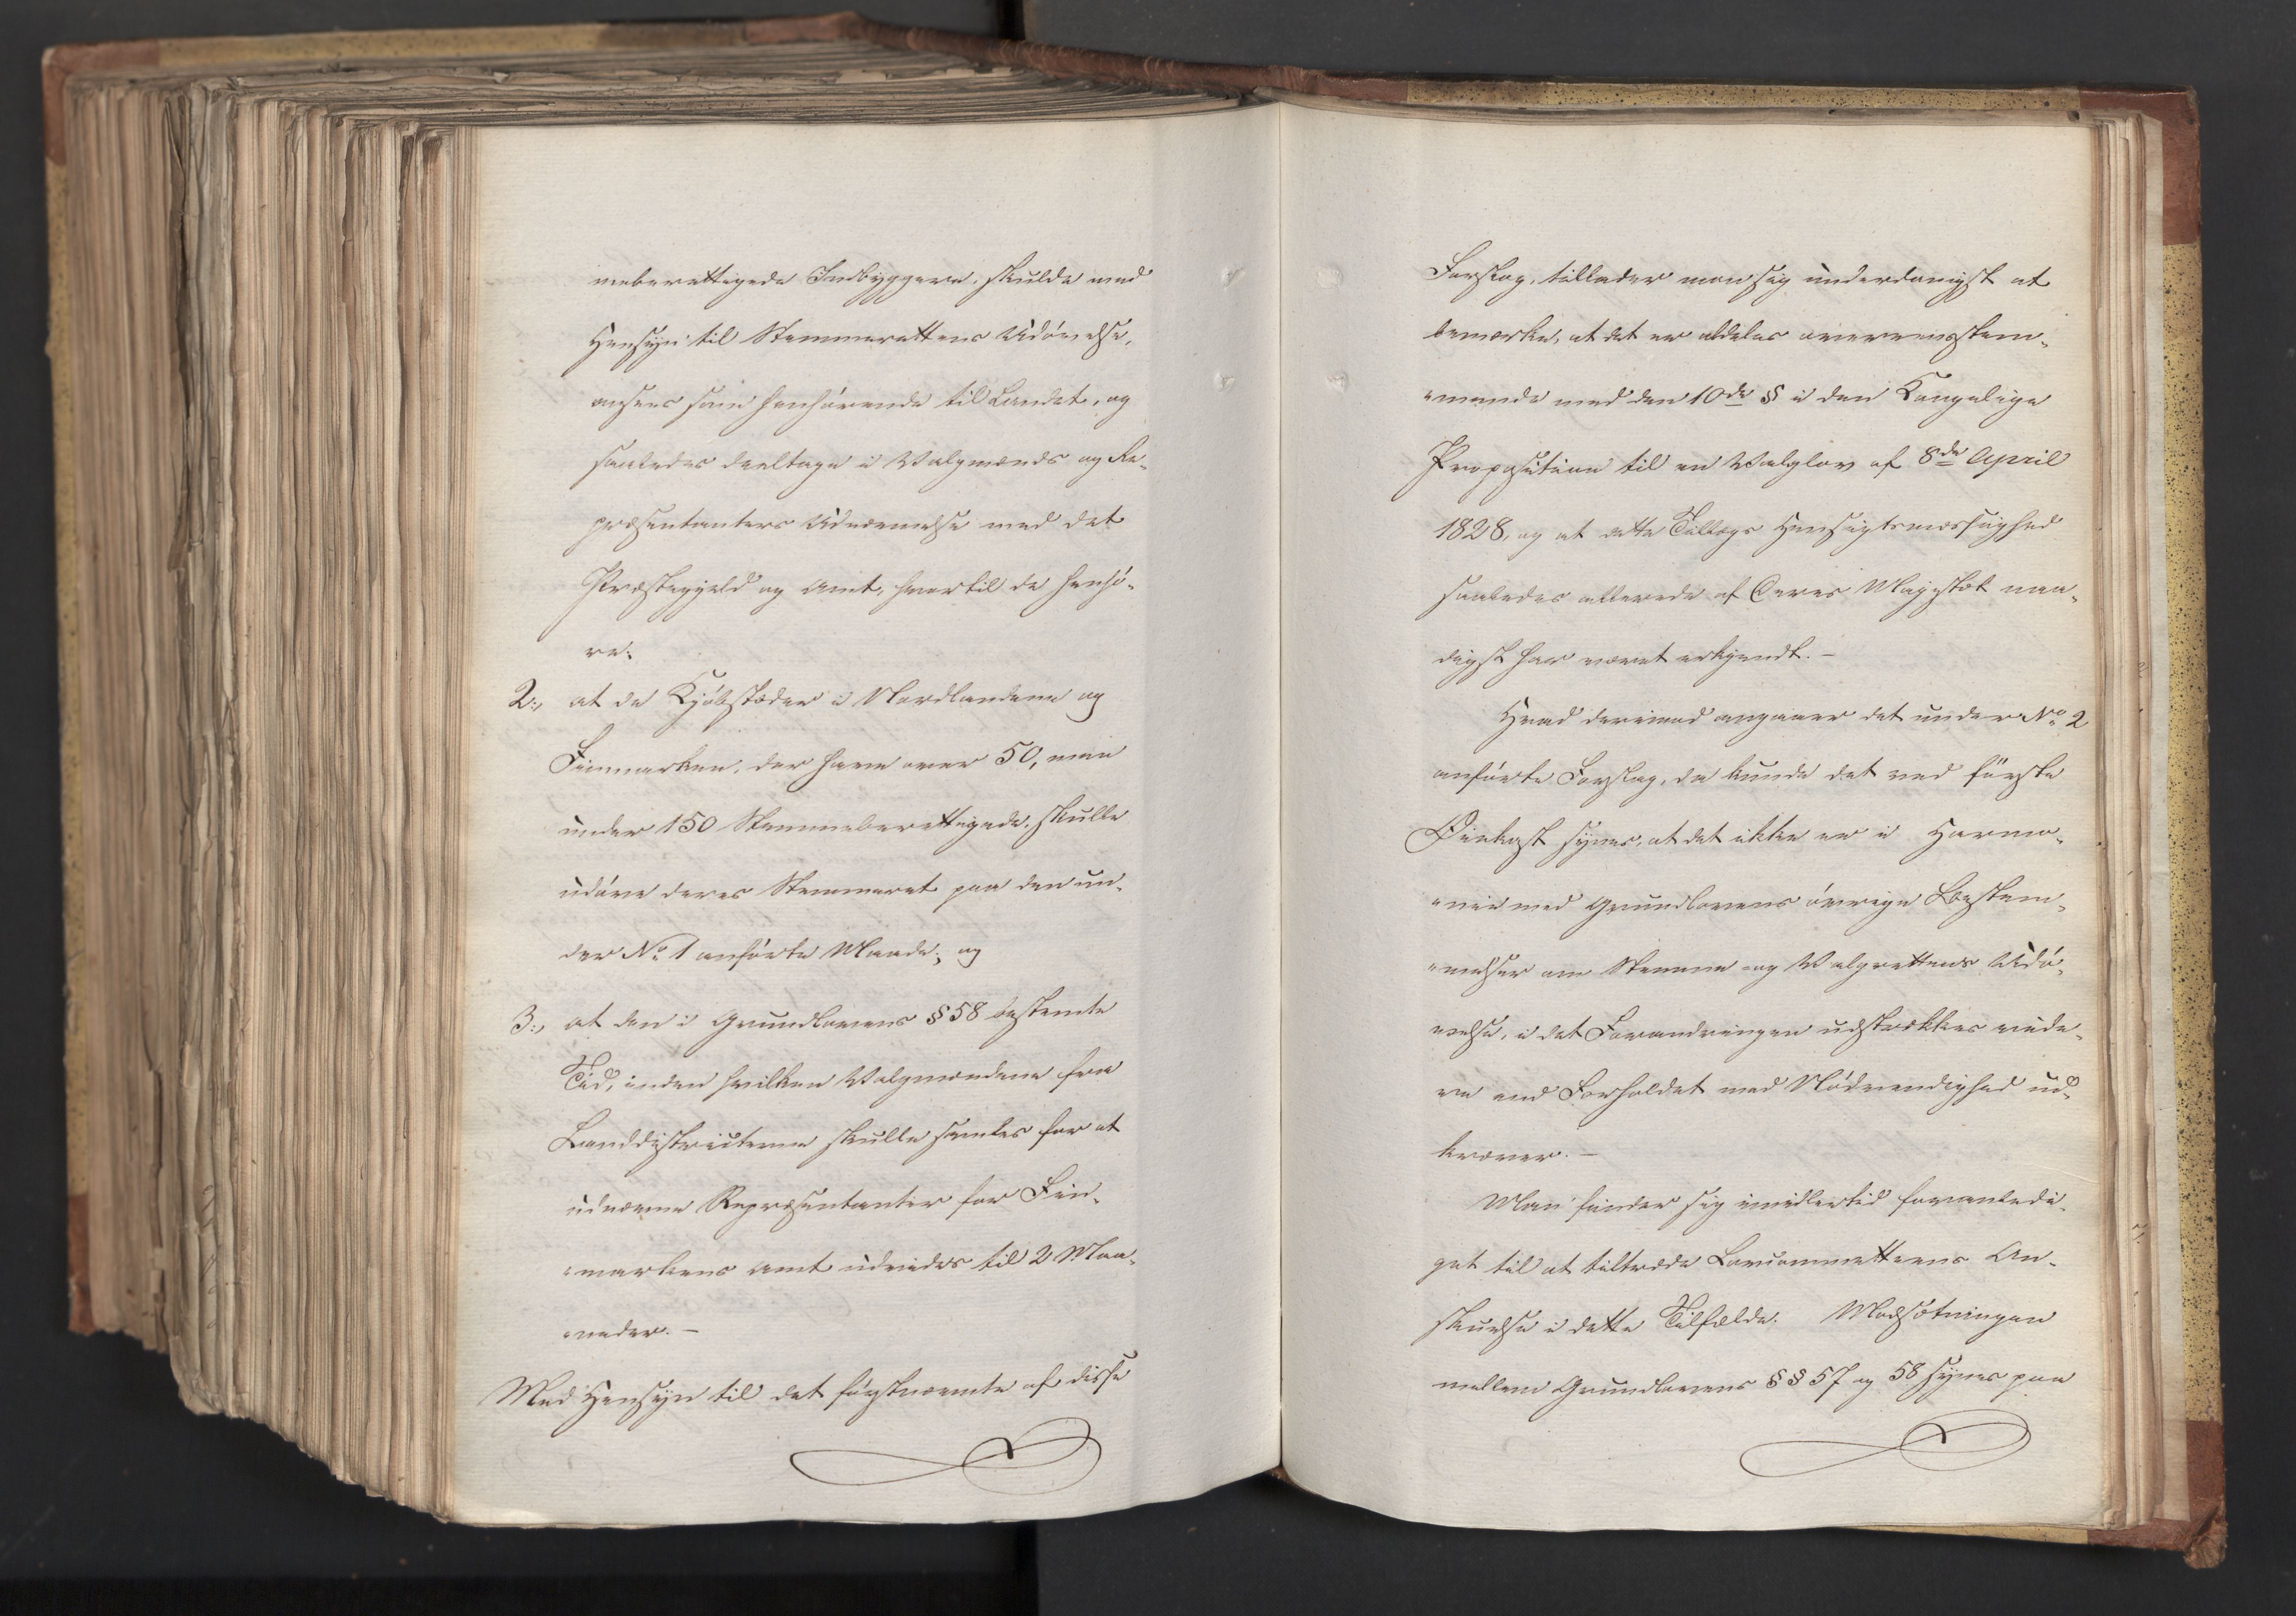 meberettigede Indbyggere, skulde med
Hensyn til Stemmerettens Udövelse,
ansees som henhörende til Landet, og
saaledes deeltage i Valgmænds og Re-
præsentanters Udnævnelse med det
Præstegjeld og Amt, hvortil de henhö-
re;
2:, at de Kjöbstæder i Nordlandene og
Finmarken, der have over 50, men
under 150 Stemmeberettigede, skulle
udöve deres Stemmeret paa den un-
der No 1 anförte Maade; og
3:, at den i Grundlovens § 58 bestemte
Tid, inden hvilken Valgmændene fra
Landdistricterne skulle samles for at
udnævne Repræsentanter for Fin-
markens Amt udvides til 2 Maa-
neder. —
Med Hensyn til det förstnævnte af disse
Forslag, tillader man sig underdanigst at
bemærke, at det er aldeles overeensstem-
mende med den 10de § i den Kongelige
Proposition til en Valglov af 8de April
1828, og at dette Tillægs Hensigtsmæssighed
saaledes allerede af Deres Majestæt naa-
digst har været erkjendt. —
Hvad derimod angaaer det under No 2
anförte Forslag, da kunde det ved förste
Öiekast synes, at det ikke er i Harmo-
nie med Grundlovens övrige Bestem-
melser om Stemme- og Valgrettens Udö-
velse, i det Forandringen udstrækkes vide-
re end Forholdet med Nödvendighed ud-
kræver. —
Man finder sig imidlertid foranledi-
get til at tiltræde Lovcommitteens An-
skuelse i dette Tilfælde. Modsætningen
mellem Grundlovens §§ 57 og 58 synes paa